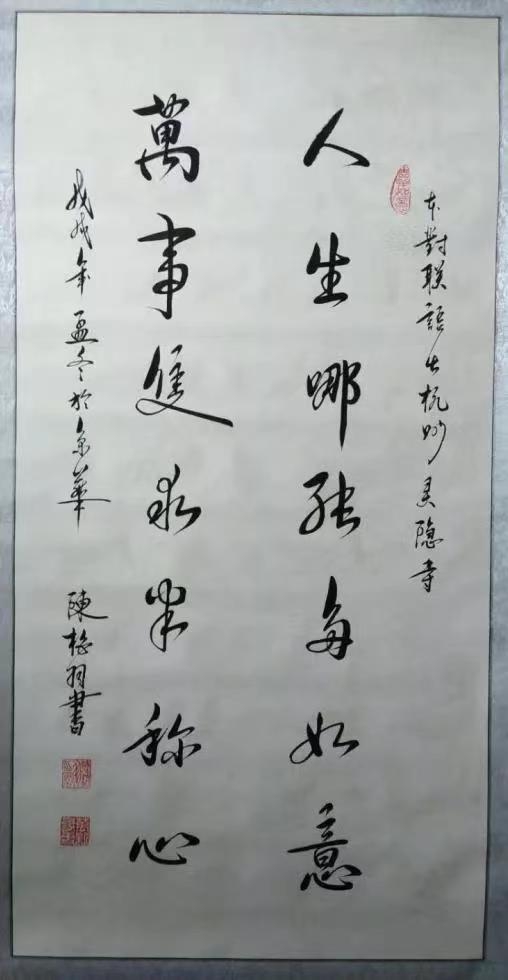 本對联語出杭州灵隐寺
人生哪能多如意
萬事隻求半称心
戊戌年孟冬於京華 陳羽書